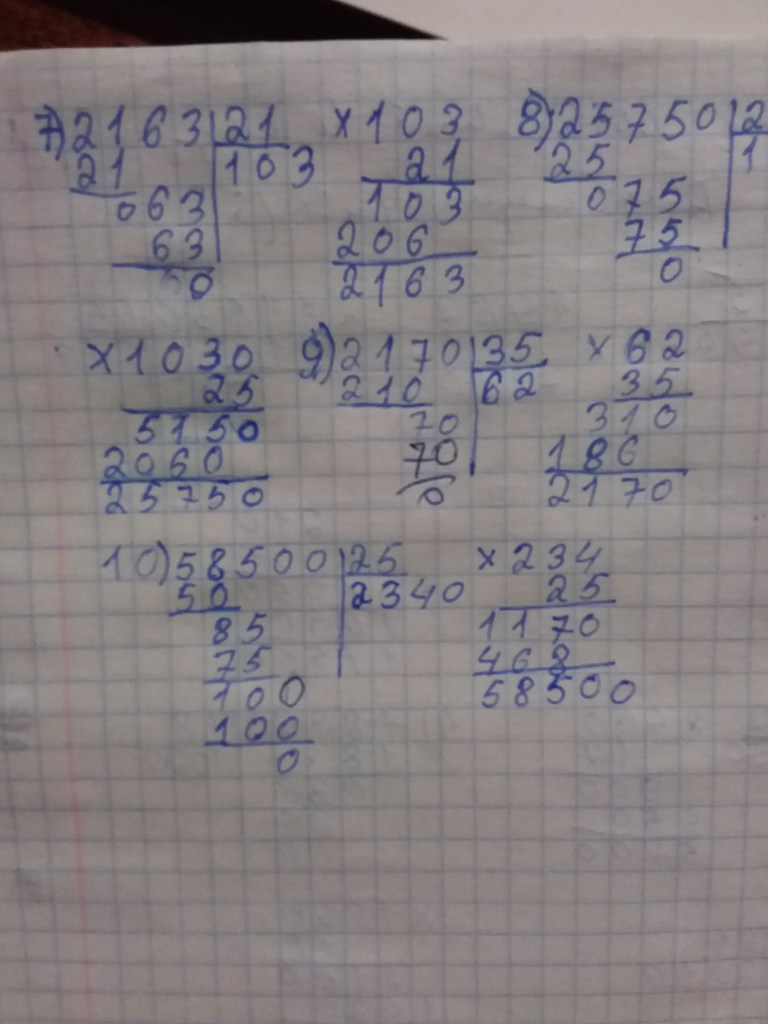 7) 2163 | 21 × 103 8) 25750 | 2
21 103 21 25 1
063 103 075
63 206 75
0 2163 0
× 1030 9) 2170 | 35 × 62
25 210 62 35
5150 70 310
2060 70 186
25750 0 2170
10) 58500 | 25 × 234
50 2340 25
85 1170
75 468
100 58500
100
0